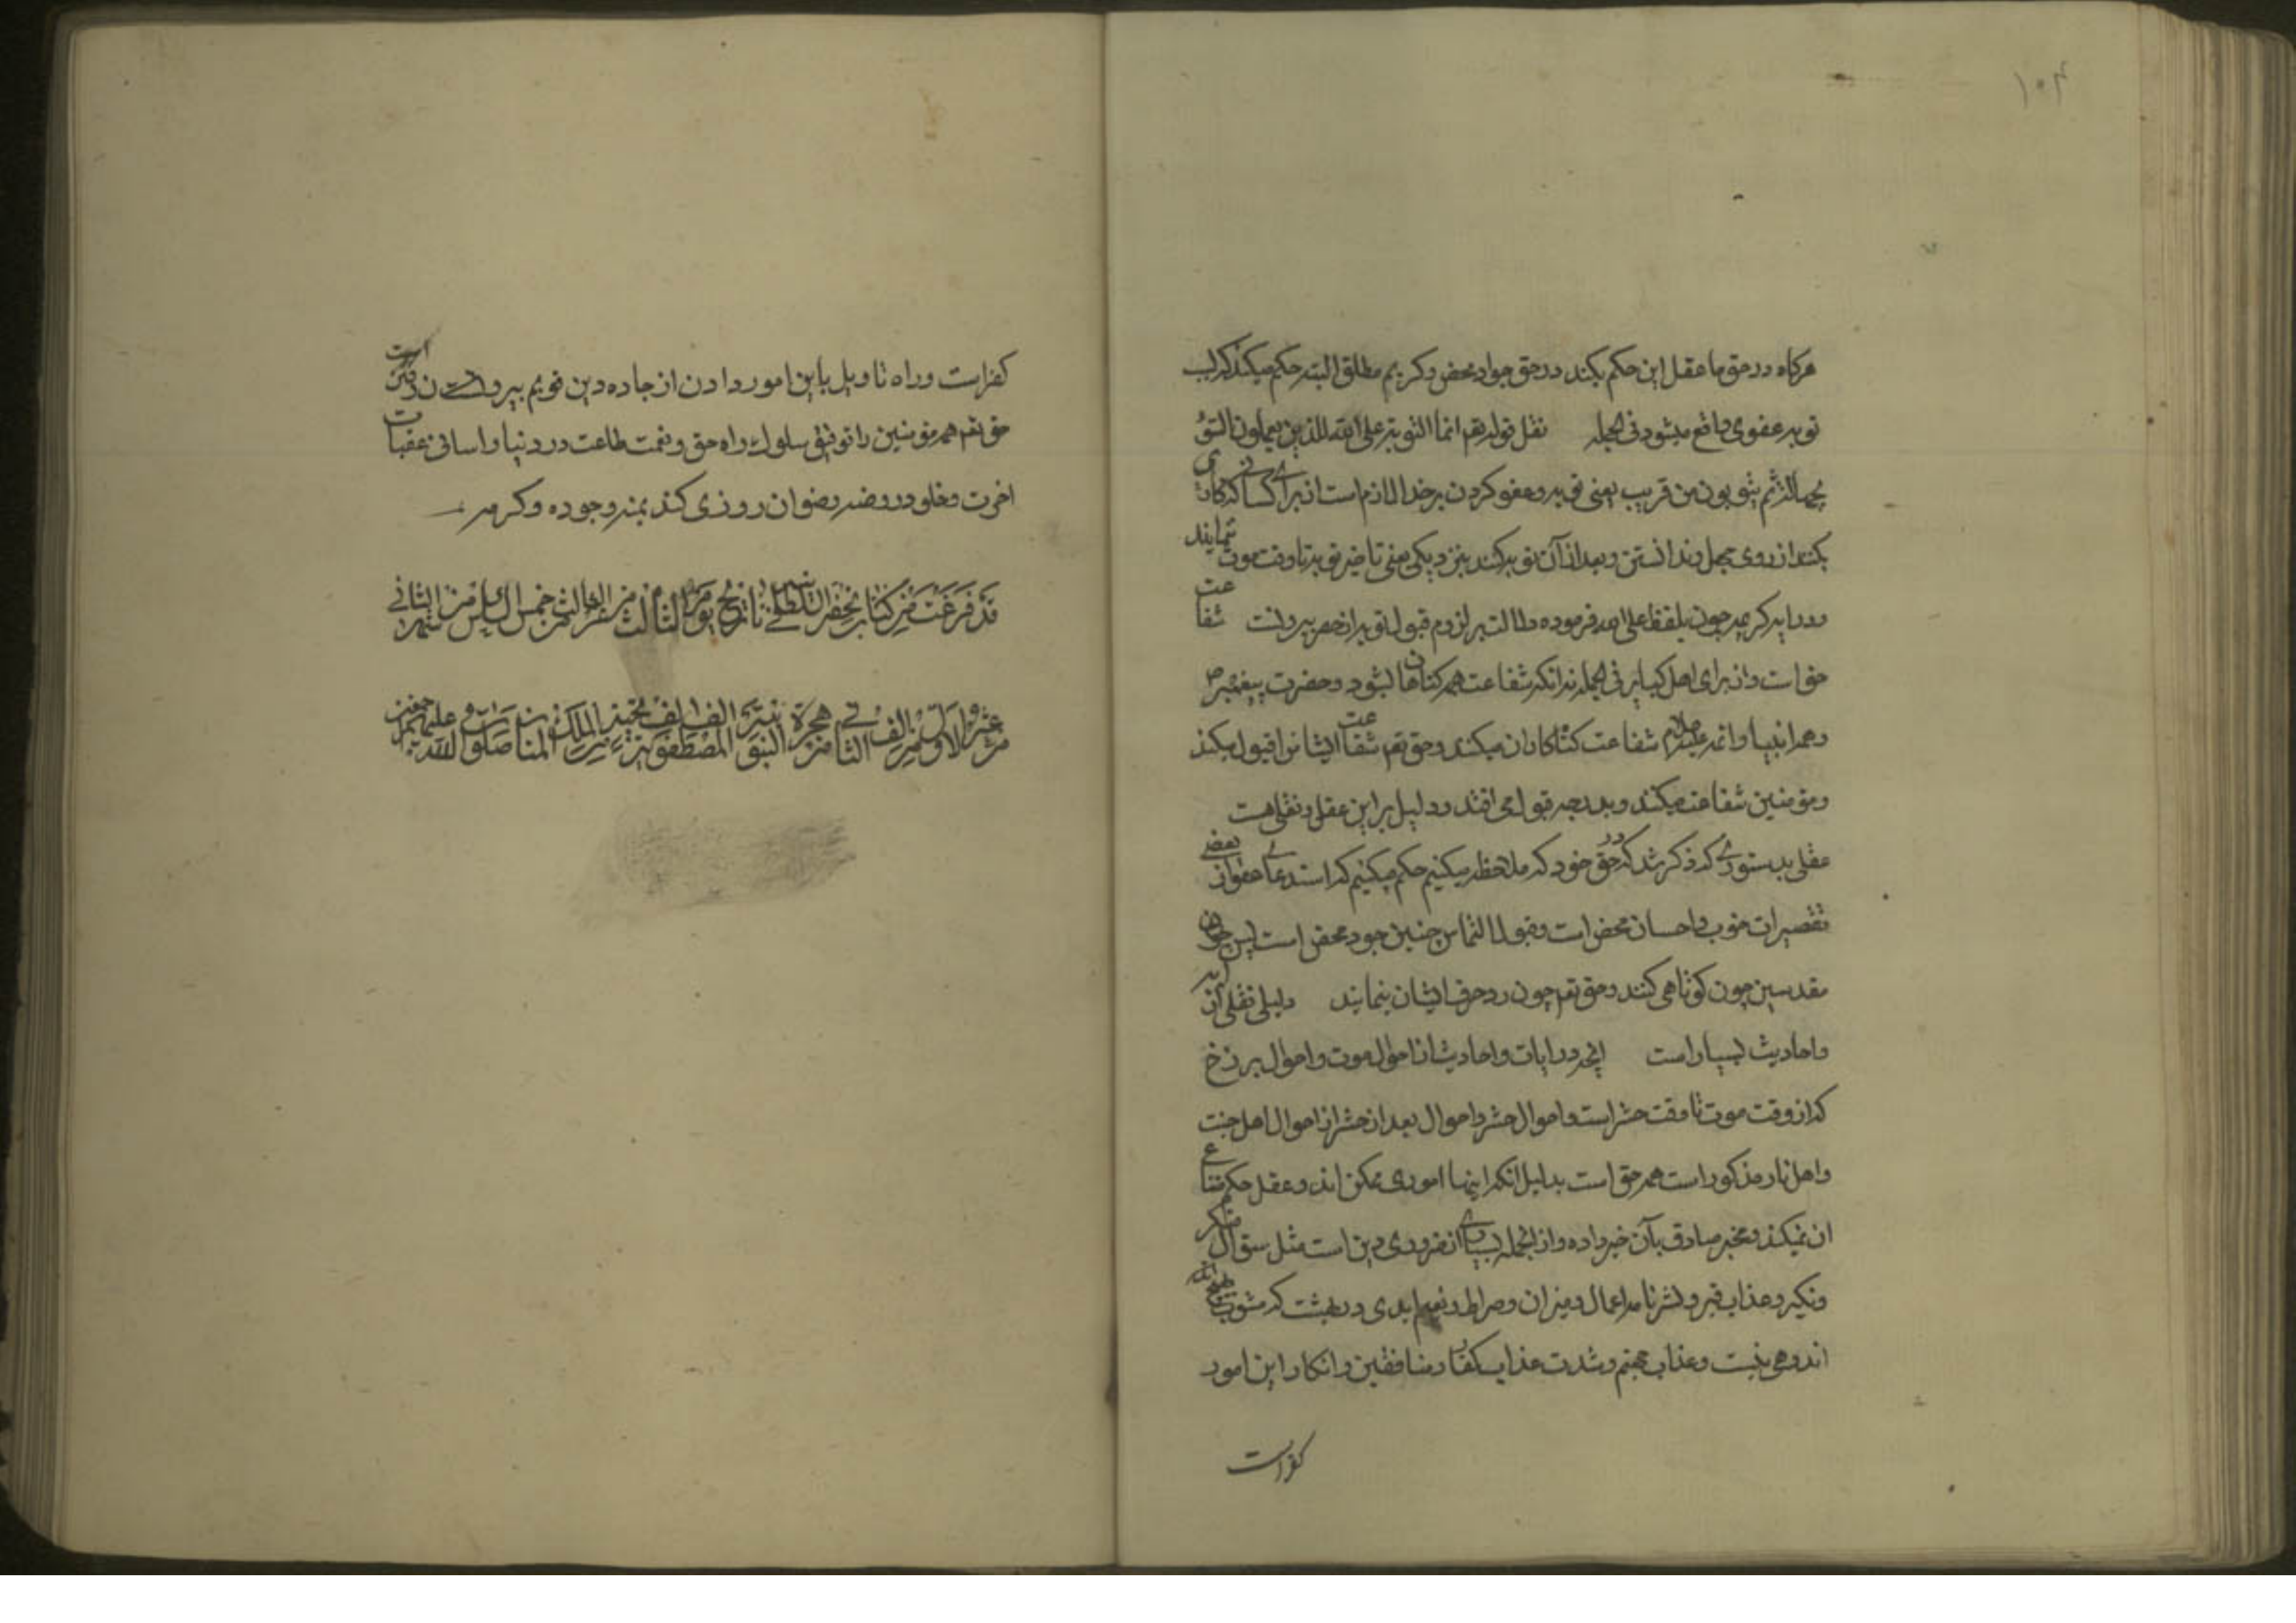 ۱۰۴
هرکاه در حق ما عقل این حکم بکند در حق جواد محض و کریم مطلق البته حکم میکند که باب
توبه عفوی واقع میشود فی الجمله نقل قوله تعم انما التوبة علی الله للذین یعملون السوٓ
بجهالة ثم یتوبون من قریب یعنی توبه و عفو کردن بر خدا لازم است از برای کسانی که کناهی
بکنند از روی جهل و ندانستن و بعد از آن توبه کنند بنزدیکی یعنی تاخیر توبه تا وقت موت ننمایند
و در ایه کریمه چون بلفظ علی الله فرموده دلالت بر لزوم قبول توبه از خصر بیرونست شفاعت
حق است و از برای اهل کبایر فی الجمله نه انکه شفاعت همه کناهان بشود و حضرت پیغمبر ص
و همه انبیا و ائمه علیهم السلام شفاعت کناه کاران میکنند و حق تعم شفاعت ایشان را قبول میکند
و مؤمنین شفاعت میکنند و بدرجه قبول می افتد و دلیل بر این عقلی و نقلی هست
عقلی بدستوری که ذکر شد که در حق خود که ملاحظه میکنیم حکم میکنیم که استدعای عفو از بعضی
تقصیرات خوب و احسان محض است و قبول التماس چنین جود محض است پس چون
مقدسین چون کوتاهی کنند و حق تعم چون رد حرف ایشان بنمایند دلیل نقلی از آیه
و احادیث بسیار است انچه در ایات و احادیث از احوال موت و احوال برزخ
که از وقت موت تا وقت حشر است و احوال حشر و احوال بعد از حشر از احوال اهل جنت
و اهل نار مذکور است همه حق است بدلیل انکه اینها اموری ممکن اند و عقل حکم بامتناع
ان نمیکند و مخبر صادق بآن خبر داده و از انجمله بسیاری از ضروری دین است مثل سؤال منکر
و نکیر و عذاب قبر و نشر نامه اعمال و میزان و صراط و نعیم ابدی در بهشت که مشوب بهیچ
اندوهی نیست و عذاب جهنم و شدت عذاب کفار و منافقین و انکار این امور
کفر است
کفر است و راه تاویل باین امور دادن از جاده دین قویم بیرون رفتن است
حق تعم همه مؤمنین را توفیق سلوک راه حق و نعمت طاعت در دنیا و اسانی عقبات
اخرت و خلود در روضه رضوان روزی کند بمنه وجوده و کرمه
قد فرغت من کتابه تاریخ یوم الثالث من الثالث خمس الثانی
من عشر الاول من الف الثانی من هجرة النبویة المصطفویة الملک المنان صلوات الله علیهم اجمعین